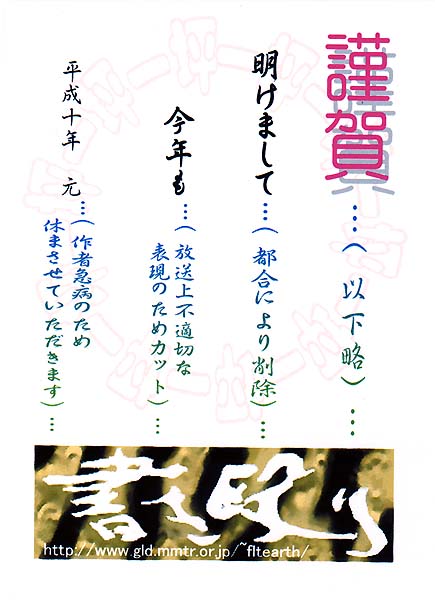 謹賀…(以下略)…
明けまして…(都合により削除)…
今年も…(放送上不適切な
表現のためカット)…
平成十年 元…(作者急病のため
休まさせていただきます)…
書き殴り
http://www.gld.mmtr.or.jp/~fltearth/